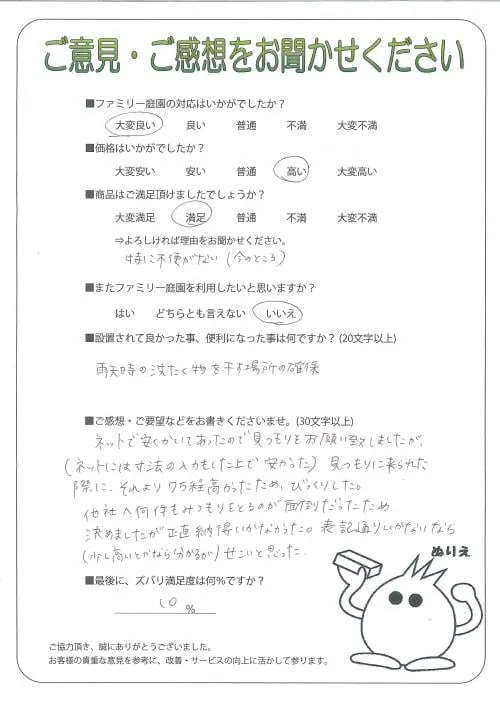 ご意見・ご感想をお聞かせください
■ファミリー庭園の対応はいかがでしたか？
大変良い 良い 普通 不満 大変不満
■価格はいかがでしたか？
大変安い 安い 普通 高い 大変高い
■商品はご満足頂けましたでしょうか？
大変満足 満足 普通 不満 大変不満
⇒よろしければ理由をお聞かせください。
特に不便がない（今のところ）
■またファミリー庭園を利用したいと思いますか？
はい どちらとも言えない いいえ
■設置されて良かった事、便利になった事は何ですか？(20文字以上)
雨天時の洗たく物を干す場所の確保
■ご感想・ご要望などをお書きくださいませ。(30文字以上)
ネットで安くかいてあったので見つもりをお願い致しましたが、
（ネットには寸法の入力もした上で安かった）見つもりに来られた
際に、それより7万程高かったため、びっくりした。
他社へ何件もみつもりをとるのが面倒だったため
決めましたが正直納得いかなかった。表記通りいかないなら
（少し高いとかなら分かるが）せこいと思った。
ぬりえ
■最後に、ズバリ満足度は何％ですか？
％
ご協力頂き、誠にありがとうございました。
お客様の貴重な意見を参考に、改善・サービスの向上に活かして参ります。